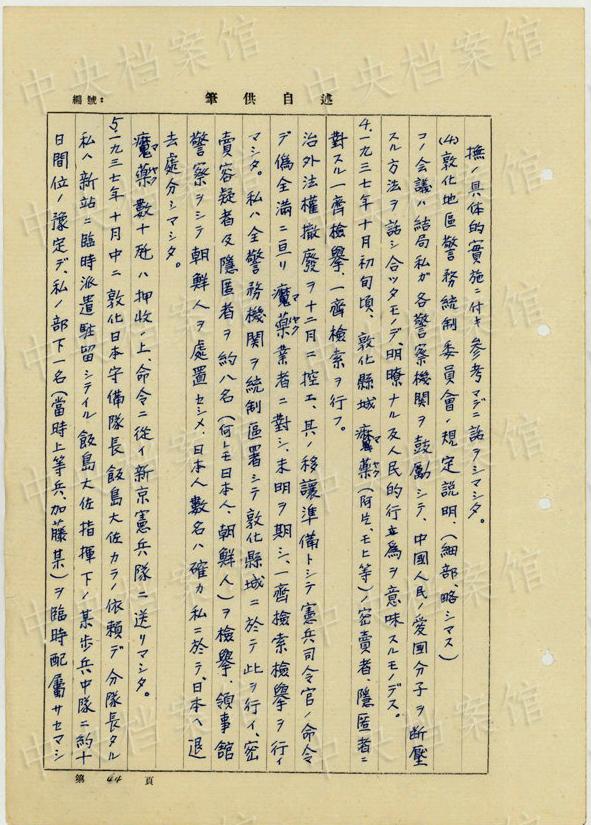 編號:
筆供自述
撫ノ具体的實施ニ付キ参考マデニ話ヲシマシタ。
(4)敦化地區警務統制委員會ノ規定説明、(細部、略シマス)
コノ会議ハ結局私ガ各警察機関ヲ鼓勵シテ、中國人民ノ愛國分子ヲ断壓
スル方法ヲ話シ合ツタモノデ、明瞭ナル反人民的行為ヲ意味スルモノデス。
4.一九三七年十月初旬頃、敦化縣城魔薬(阿片、モヒ等)ノ密賣者、隱匿者ニ
マヤク
對スル一齊檢擧、一齊檢索ヲ行フ。
治外法權撤廢ヲ十二月ニ控エ、其ノ移讓準備トシテ憲兵司令官ノ命令
デ偽全満ニ亘リ魔薬業者ニ對シ、未明ヲ期シ、一齊檢索檢擧ヲ行イ
マヤク
マシタ。私ハ全警務機関ヲ統制區署シテ敦化縣城ニ於テ此ヲ行イ、密
賣容疑者及隱匿者ヲ約八名(何トモ日本人、朝鮮人)ヲ檢擧、領事館
警察ヲシテ朝鮮人ヲ處置セシメ、日本人數名ハ確カ私ニ於テ、日本ヘ退
去處分シマシタ。
魔薬數十瓩ハ押收ノ上、命令ニ從イ新京憲兵隊ニ送リマシタ。
マヤク
5.一九三七年十月中ニ敦化日本守備隊長飯島大佐カラノ依頼デ分隊長タル
私ハ新站ニ臨時派遣駐留シテイル飯島大佐指揮下ノ某歩兵中隊ニ約十
日間位ノ豫定デ、私ノ部下一名(當時上等兵、加藤某)ヲ臨時配屬サセマシ
第 44 頁
中央档案馆